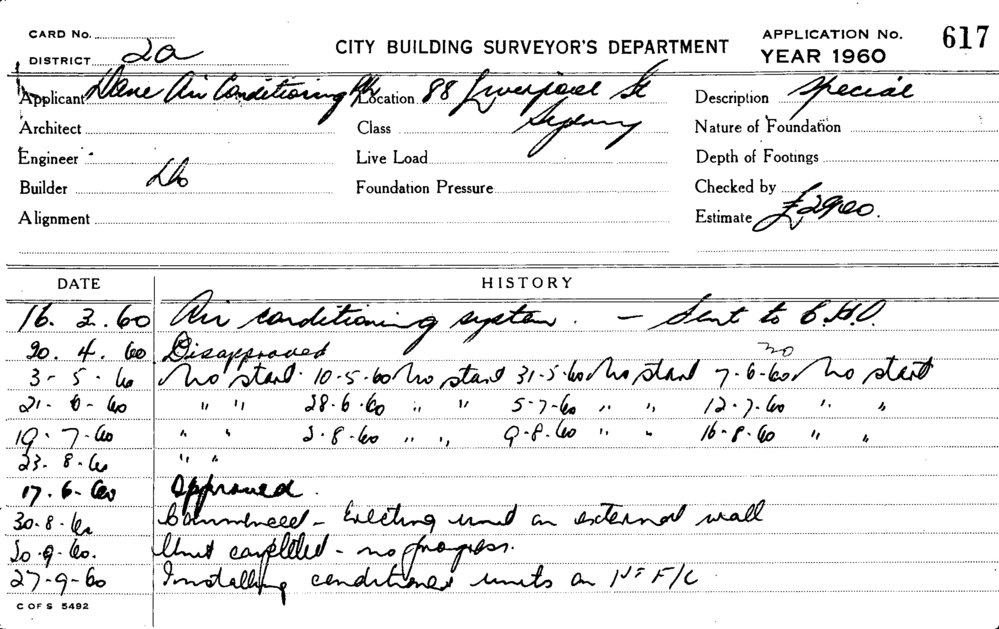 CARD No. CITY BUILDING SURVEYOR'S DEPARTMENT APPLICATION No. 617
DISTRICT 2a YEAR 1960
Applicant Dane Air Conditioning P/L Location 88 Liverpool St Description Special
Architect Class Sydney Nature of Foundation
Engineer Live Load Depth of Footings
Builder Do Foundation Pressure Checked by
Alignment Estimate £2900.
DATE HISTORY
16. 3. 60 Air conditioning system. - Sent to C.H.O.
20. 4. 60 Disapproved
3 - 5 - 60 No start. 10-5-60 No start 31-5-60 No start 7-6-60 no No start
21 - 6 - 60 " " 28-6-60 " " 5-7-60 " " 12-7-60 " "
19. 7. 60 " " 2-8-60 " " 9-8-60 " " 16-8-60 " "
23. 8. 60 " "
17. 6. 60 Approved.
30. 8. 60 Commenced - Erecting unit on external wall
20. 9. 60. Unit completed - no progress.
27-9-60 Installing conditioner units on 1st F/C
C OF S 5492